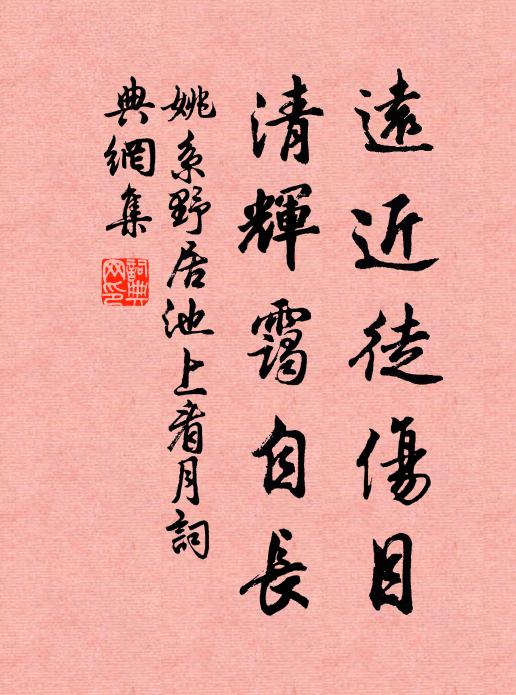 遠近徒傷目
清輝靄自長
姚系野居池上看月詞
典網集
詞典
网印